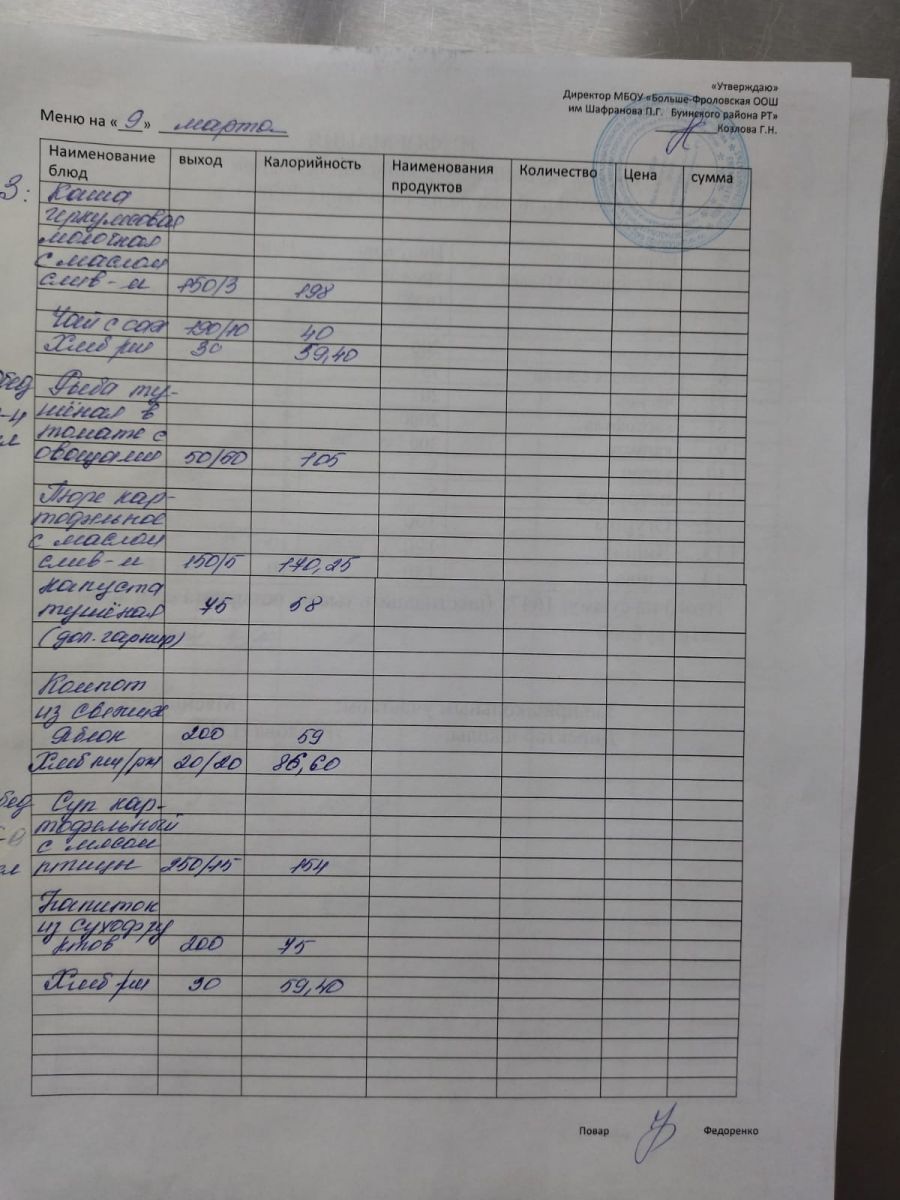 «Утверждаю»
Директор МБОУ «Больше-Фроловская ООШ
им Шафранова П.Г. Буинского района РТ»
Козлова Г.Н.
Меню на «9» марта
Наименование блюд выход Калорийность Наименования продуктов Количество Цена сумма
З: Каша
геркулесовая
молочная
с маслом
слив-м 150/3 198
Чай с сах 190/10 40
Хлеб рж 30 59,40
Рыба ту-
шёная в
томате с
овощами 50/50 105
Пюре кар-
тофельное
с маслом
слив-м 150/5 170,25
капуста
тушёная 75 58
(доп. гарнир)
Компот
из свежих
яблок 200 59
Хлеб пш/рж 20/20 86,60
Суп кар-
тофельный
с мясом
птицы 250/15 154
Напиток
из сухофру
ктов 200 75
Хлеб рж 30 59,40
Повар Федоренко